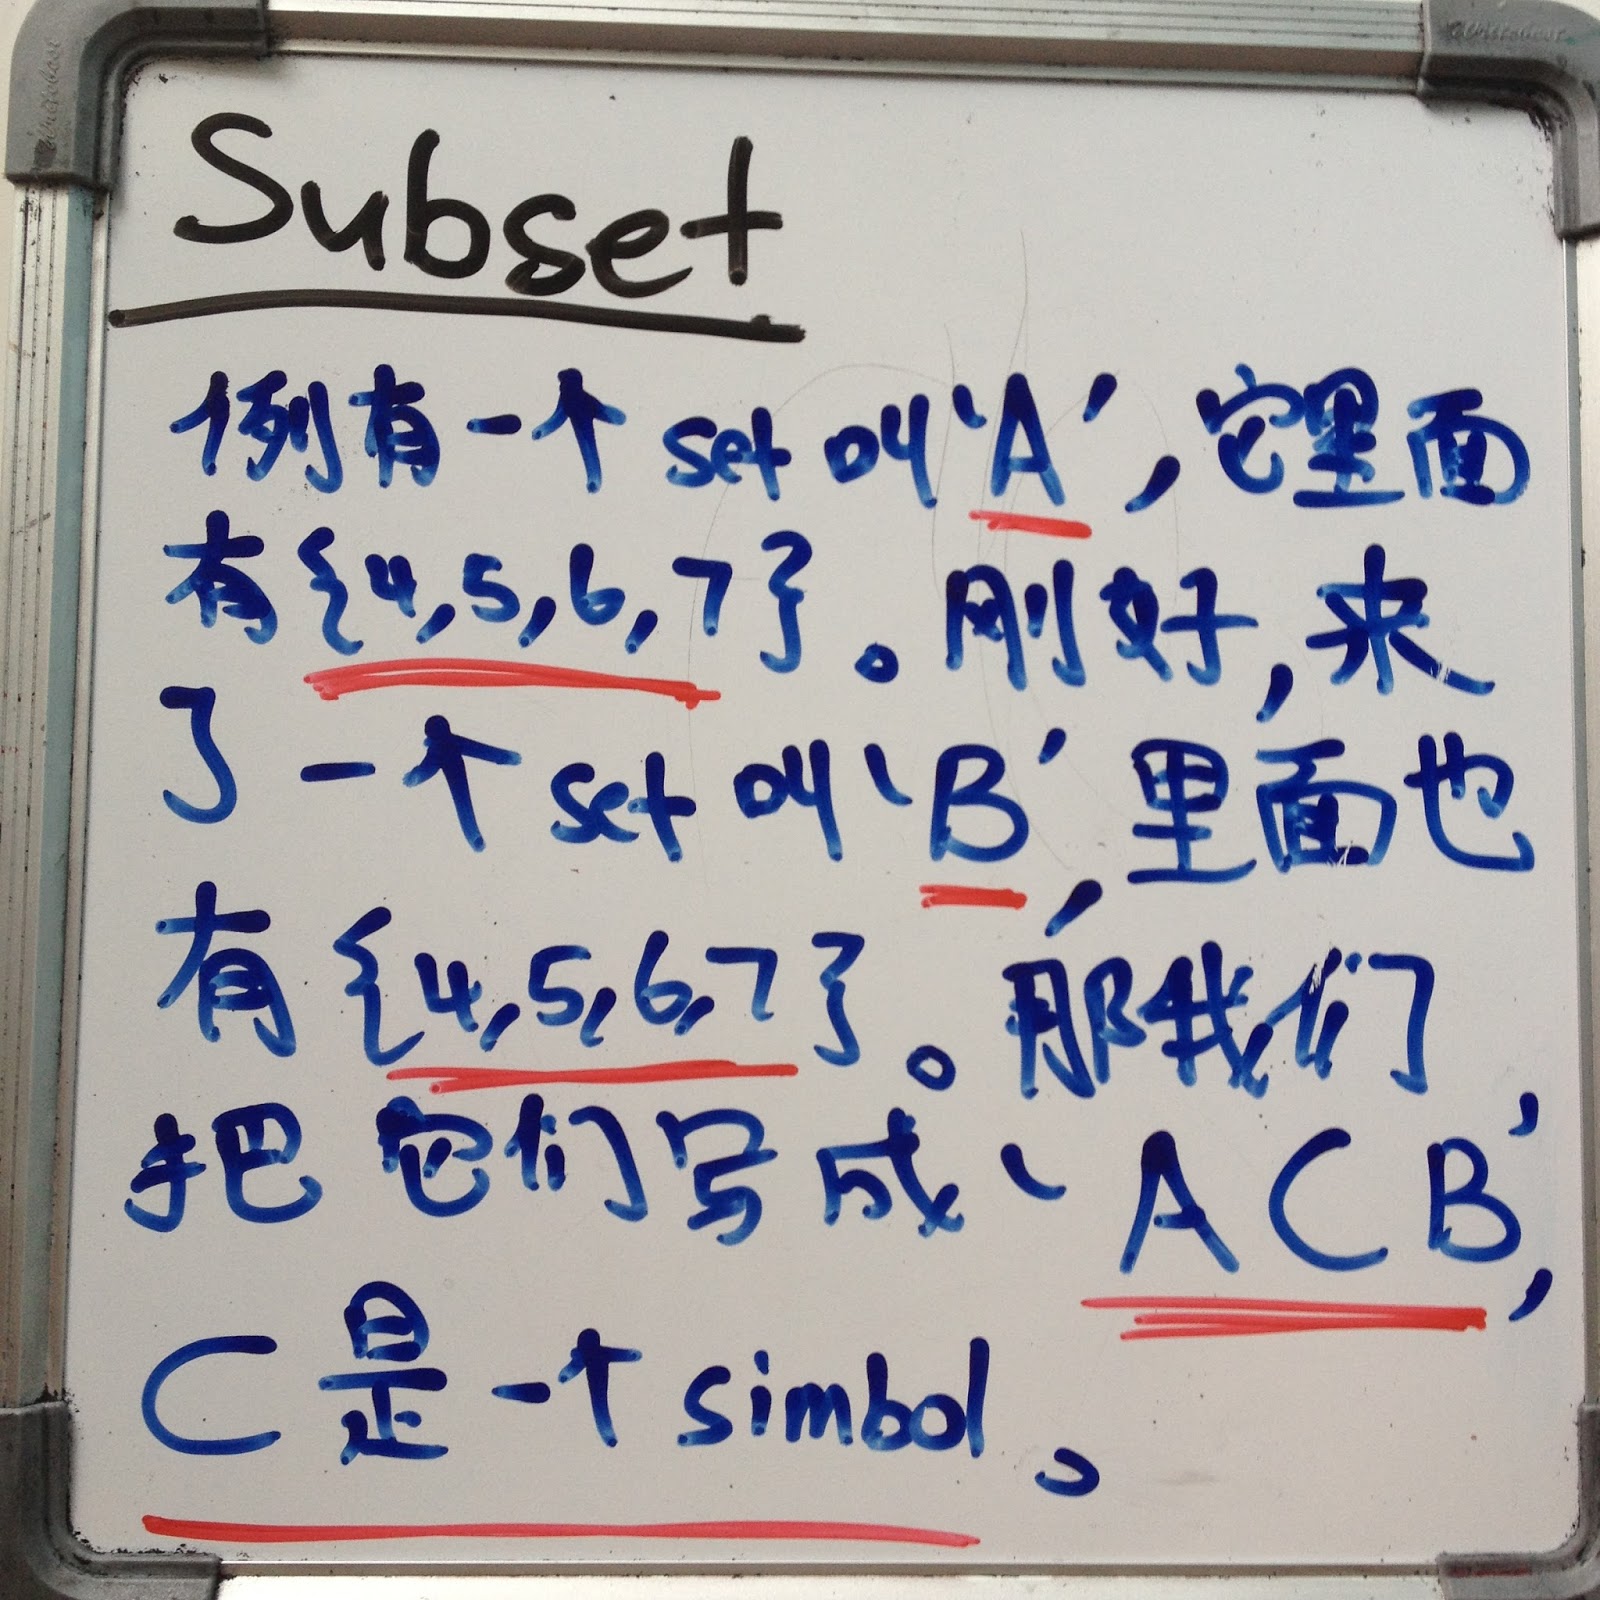 Subset
例有一个 set 叫‘A’, 它里面
有{4,5,6,7}。刚好,来
了一个 set 叫‘B’,里面也
有{4,5,6,7}。那我们
把它们写成‘A⊂B’,
⊂是一个simbol。